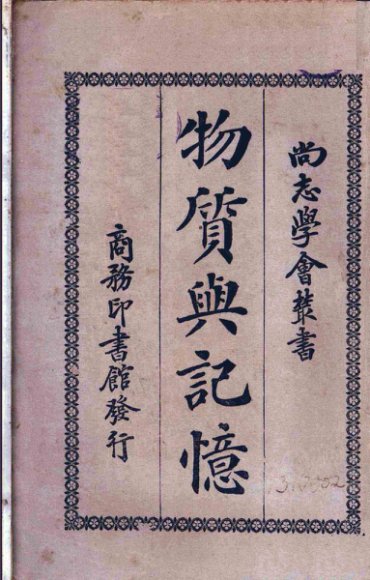 尚志學會叢書
物質與記憶
商務印書館發行